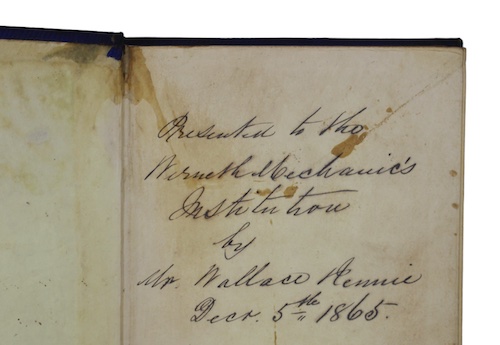 Presented to the
Werneth Mechanic's
Institution
by
Mr. Wallace Rennie
Decr. 5th 1865.